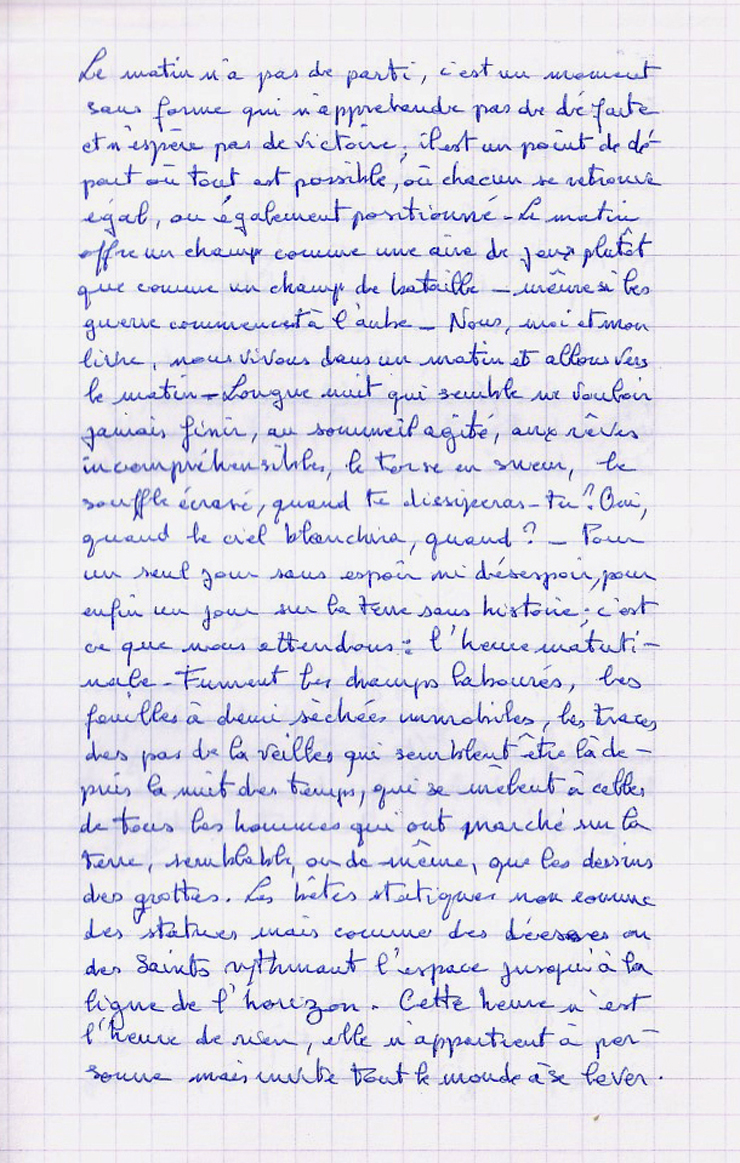 Le matin n'a pas de parti, c'est un moment
sans forme qui n'apprehende pas de défaite
et n'espère pas de victoire ; il est un point de dé-
part où tout est possible, où chacun se retrouve
égal, ou également positionné - Le matin
offre un champ comme une aire de jeux plutôt
que comme un champ de bataille - même si les
guerre commencent à l'aube - Nous, moi et mon
livre, nous vivons dans un matin et allons vers
le matin - Longue nuit qui semble ne vouloir
jamais finir, au sommeil agité, aux rêves
incompréhensibles, le torse en sueur, le
souffle écrasé, quand te dissiperas-tu ? Oui,
quand le ciel blanchira, quand ? - Pour
un seul jour sans espoir ni désespoir, pour
enfin un jour sur la terre sans histoire ; c'est
ce que nous attendons : l'heure matuti-
nale - Fument les champs labourés, les
feuilles à demi séchées immobiles, les traces
des pas de la veilles qui semblent être là de-
puis la nuit des temps, qui se mêlent à celles
de tous les hommes qui ont marché sur la
terre, semblable, ou de même, que les dessins
des grottes. Les bêtes statiques non comme
des statues mais comme des déesses ou
des Saints rythmant l'espace jusqu'à la
ligne de l'horizon. Cette heure n'est
l'heure de rien, elle n'appartient à per-
sonne mais invite tout le monde à se lever.